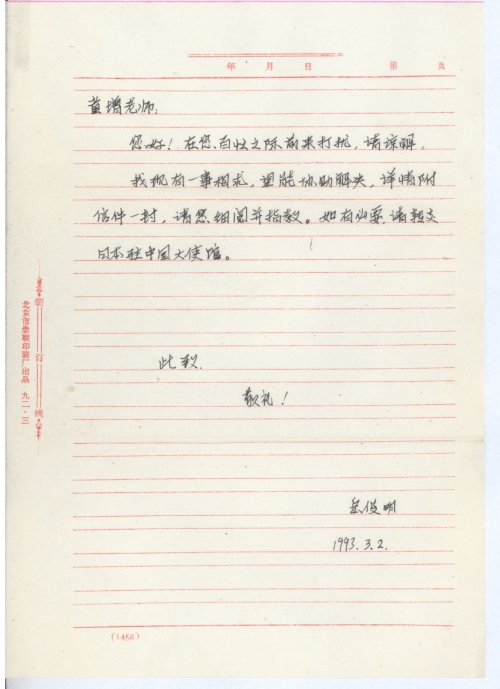 年 月 日 第 页
董增老师:
您好！在您百忙之际前来打扰，请谅解。
我现有一事相求，望能协助解决，详情附
信件一封，请您细阅并指教。如有必要，请转交
日本驻中国大使馆。
此致
敬礼！
岳俊明
1993.3.2.
装订线
北京市崇联印刷厂出品 九二·三
(1456)